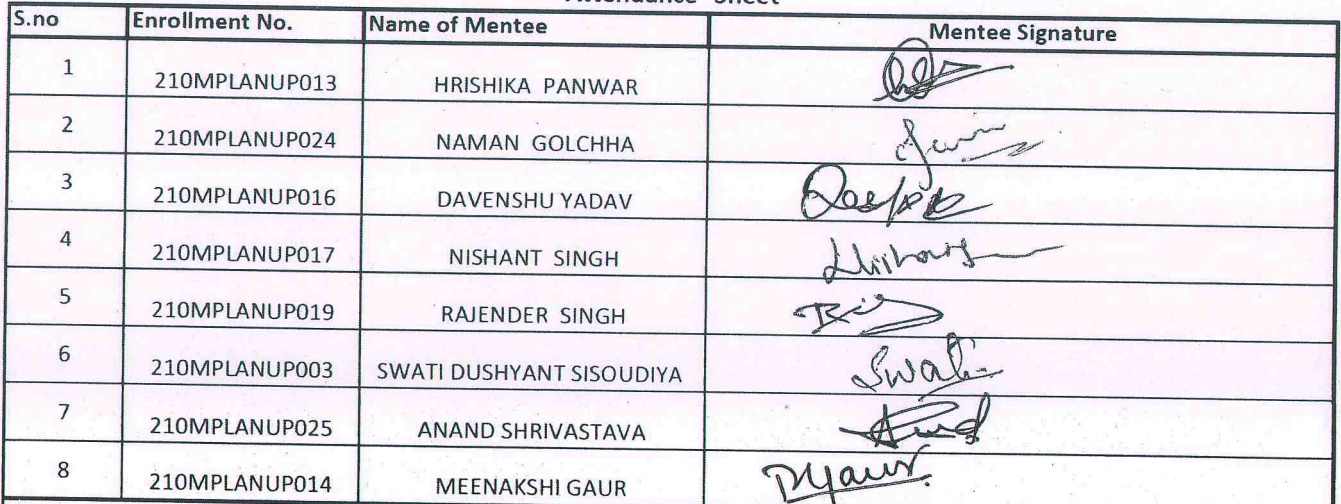 Attendance Sheet
S.no Enrollment No. Name of Mentee Mentee Signature
1 210MPLANUP013 HRISHIKA PANWAR
2 210MPLANUP024 NAMAN GOLCHHA
3 210MPLANUP016 DAVENSHU YADAV
4 210MPLANUP017 NISHANT SINGH
5 210MPLANUP019 RAJENDER SINGH
6 210MPLANUP003 SWATI DUSHYANT SISOUDIYA Swati
7 210MPLANUP025 ANAND SHRIVASTAVA
8 210MPLANUP014 MEENAKSHI GAUR